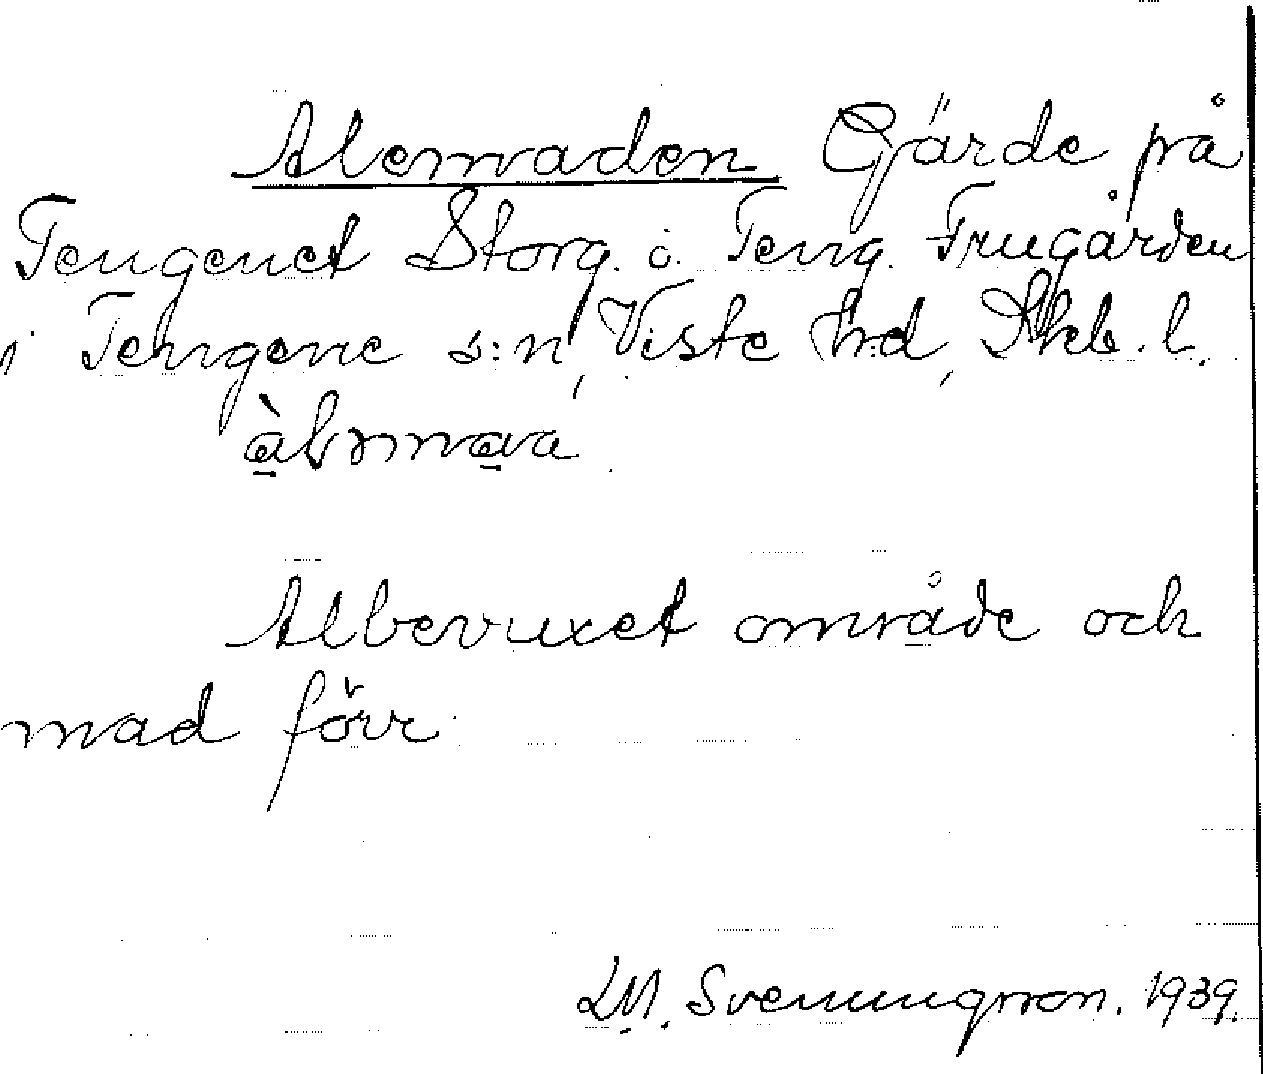 Alemaden Gärde på
Tengenet Storg. o. Teng. Frugården
i Tengene s:n, Viste hd, Skb. l.
àlmmava
Albevuxet område och
mad förr.
LM. Svenungsson. 1939.